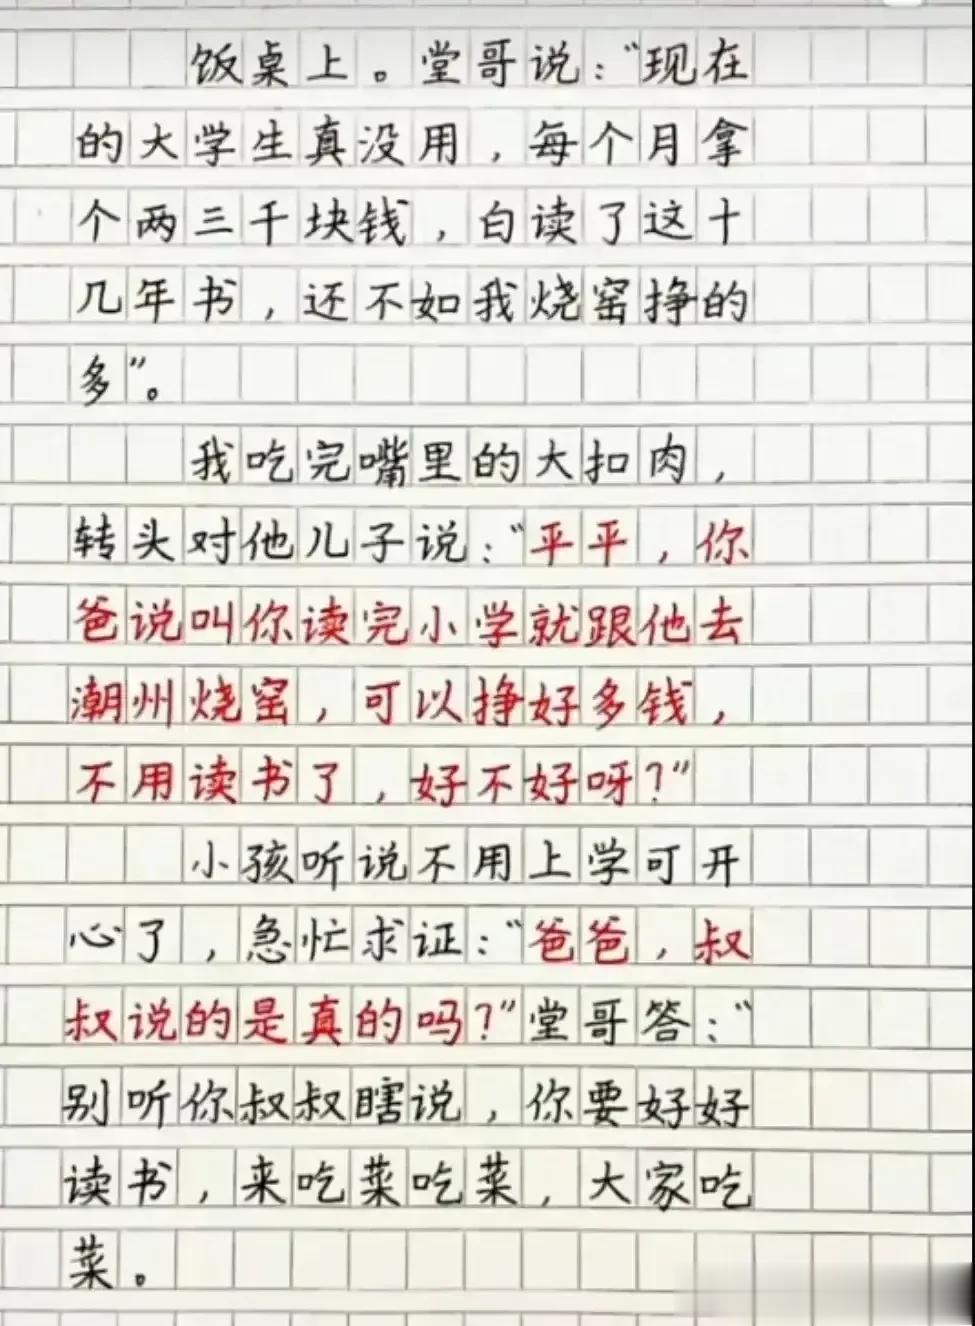 饭桌上。堂哥说:“现在
的大学生真没用,每个月拿
个两三千块钱,白读了这十
几年书,还不如我烧窑挣的
多”。
我吃完嘴里的大扣肉,
转头对他儿子说:“平平,你
爸说叫你读完小学就跟他去
潮州烧窑,可以挣好多钱,
不用读书了,好不好呀?”
小孩听说不用上学可开
心了,急忙求证:“爸爸,叔
叔说的是真的吗?”堂哥答:“
别听你叔叔瞎说,你要好好
读书,来吃菜吃菜,大家吃
菜。